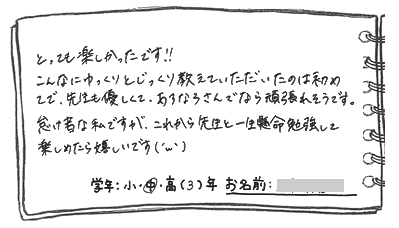 とっても楽しかったです!!
こんなにゆっくりとじっくり教えていただいたのは初め
てで、先生も優しくて、あすなろさんでなら頑張れそうです。
怠け者な私ですが、これから先生と一生懸命勉強して
楽しめたら嬉しいです('ω')
学年:小・中・高(3)年 お名前: